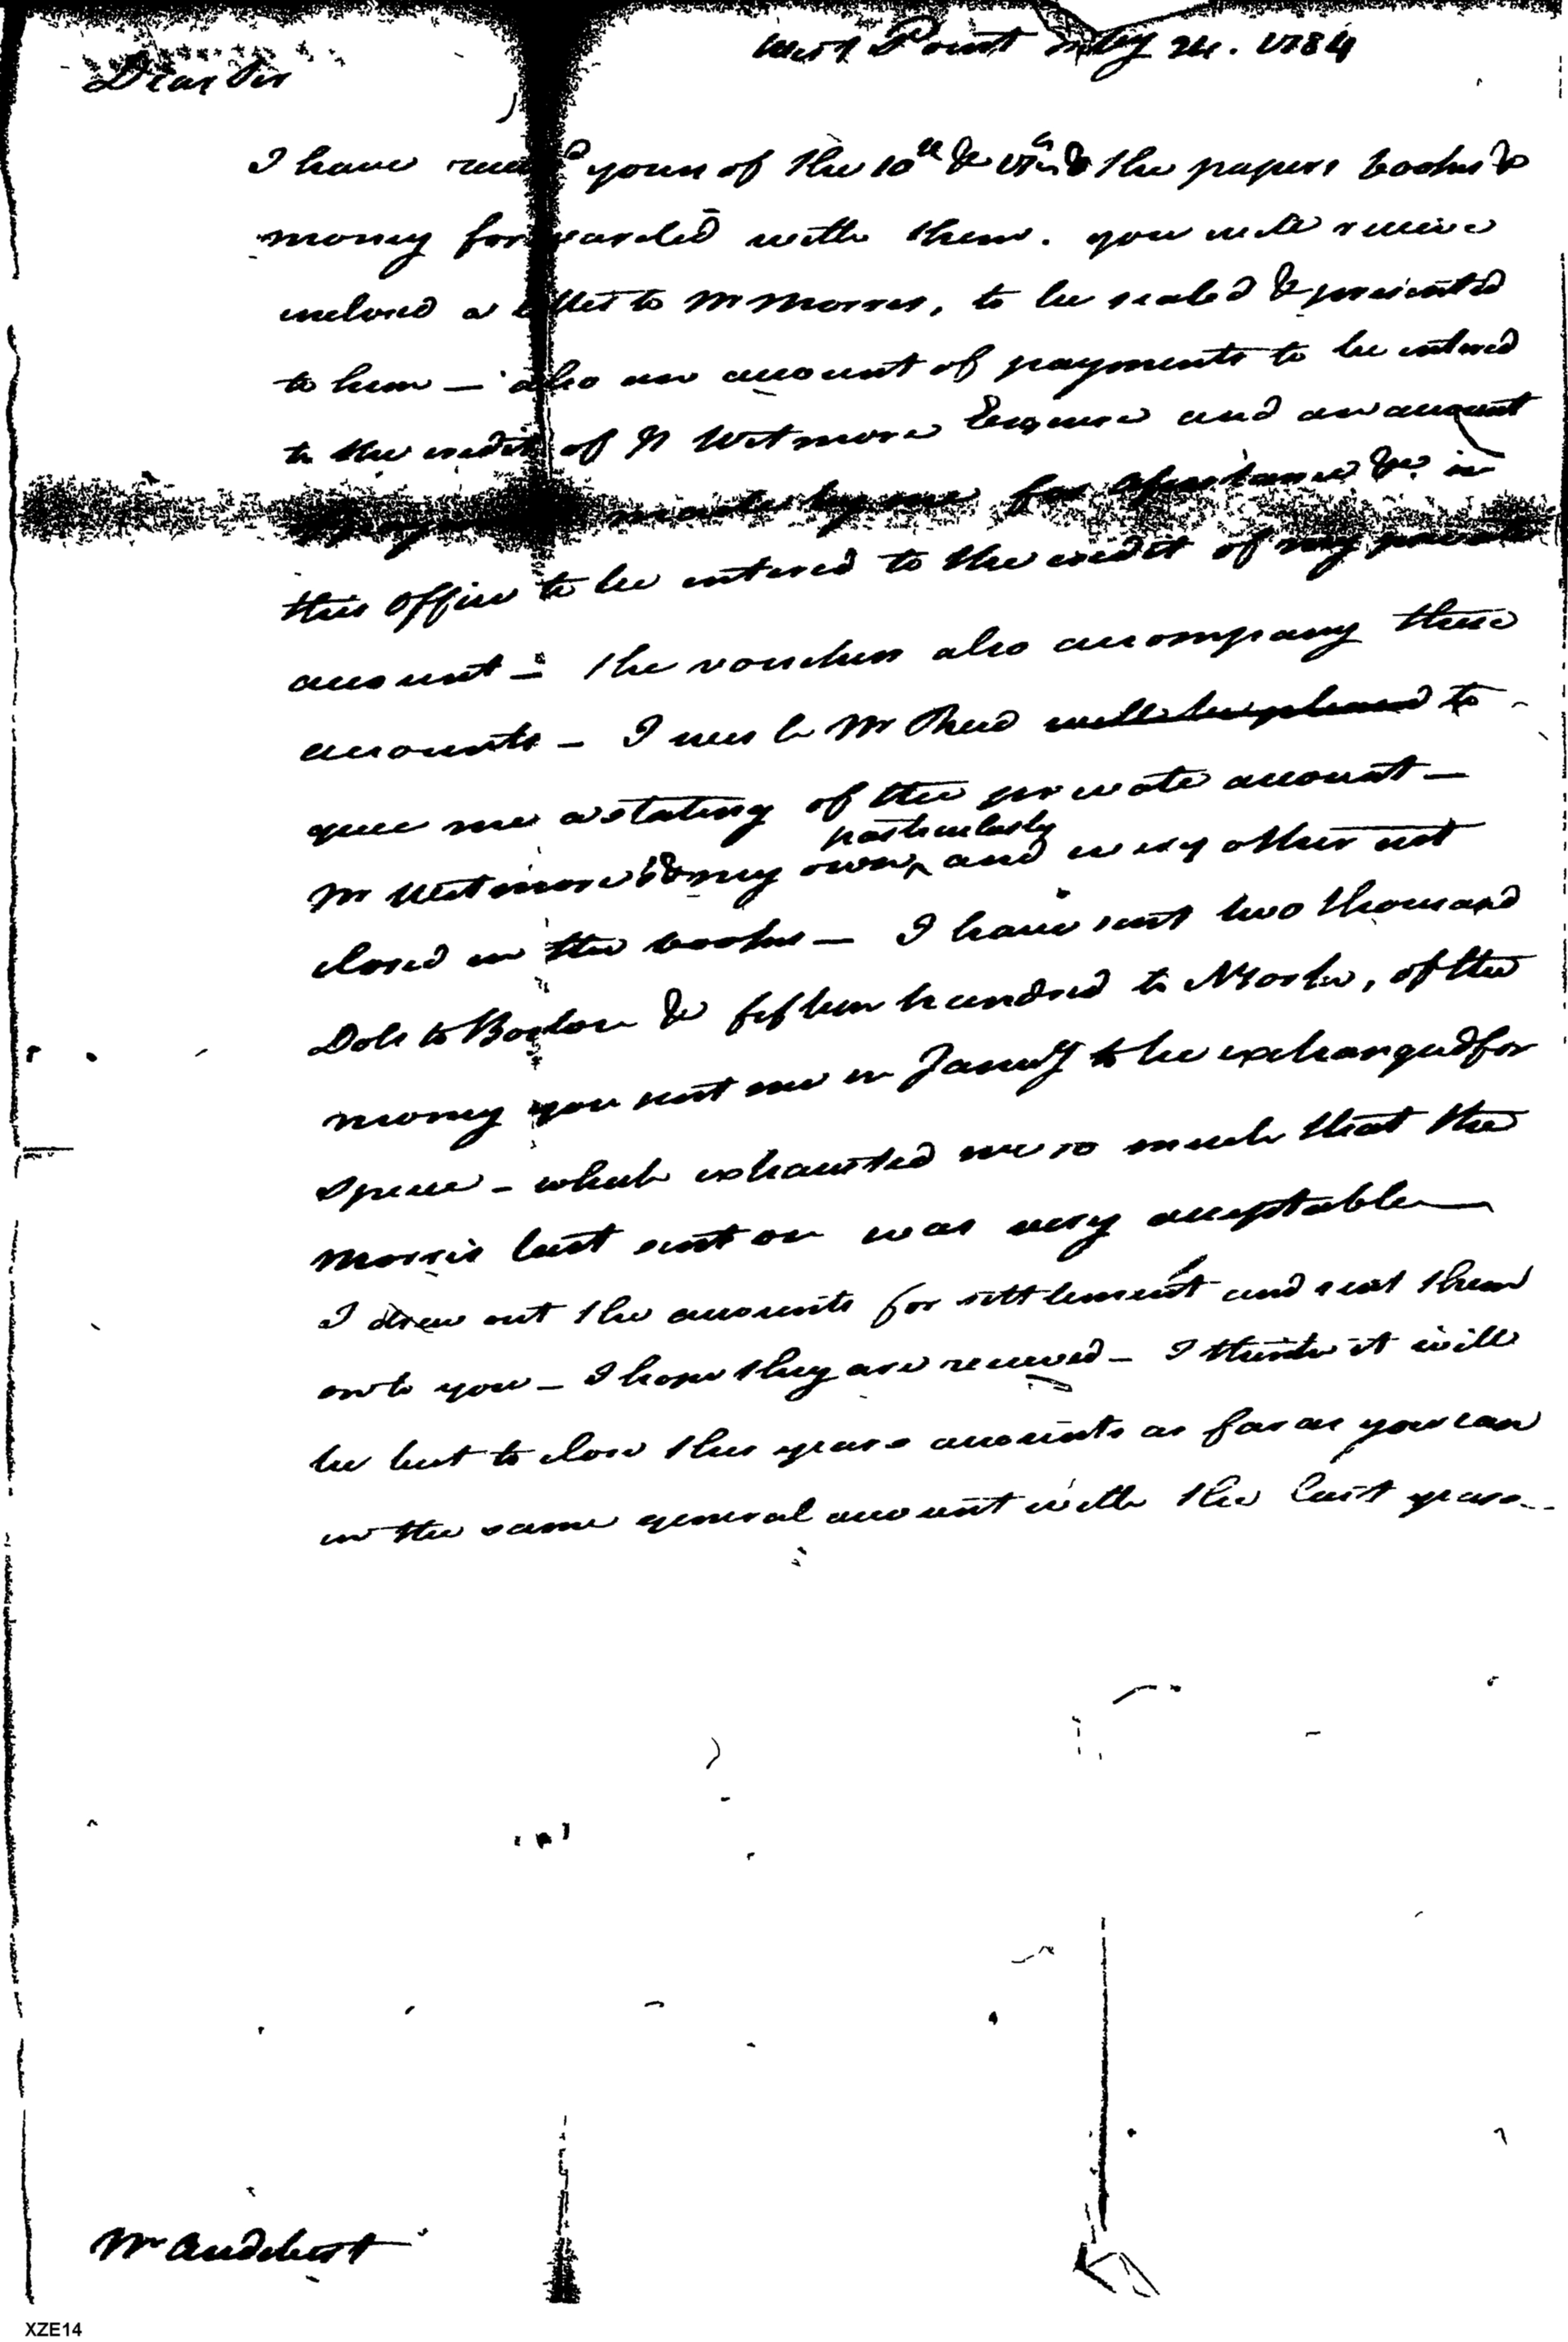 West Point May 24. 1784
Dear Sir
I have rec'd yours of the 10th & 17th & the papers books &
money forwarded with them. you will receive
inclosed a letter to Mr Morris, to be sealed & presented
to him — also an account of payments to be entered
to the credit of Wetmore Esquire and an account
made by me for assistance &c. in
this office to be entered to the credit of my private
account — the vouchers also accompany these
accounts — I wish Mr Read will be pleased to
give me a stating of the private account —
particularly
Mr Wetmores & my own, and every other not
closed in the books — I have sent two thousand
Dols to Boston & fifteen hundred to NYork, of the
money you sent me in Jany to be exchanged for
specie — which exhausted me so much that the
Morris last sent on was very acceptable
I drew out the accounts for settlement and sent them
on to you — I hope they are received — I think it will
be best to close this years accounts as far as you can
in the same general account with the last years
Mr Audebert
XZE14